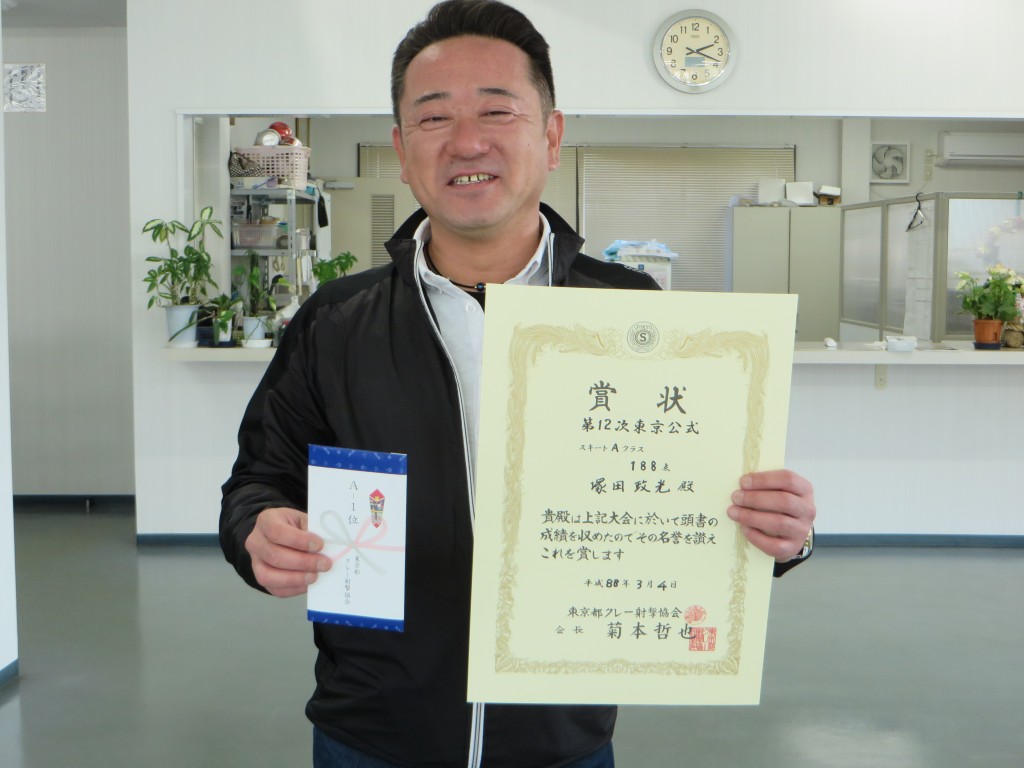 賞 状
第12次東京公式
スキートAクラス
188点
塚田政光殿
貴殿は上記大会に於いて頭書の
成績を収めたのでその名誉を讃え
これを賞します
平成88年3月4日
東京都クレー射撃協会
会長 菊本哲也
A-1位
東京都
クレー射撃協会
S
12
1
2
3
4
5
7
8
9
10
11